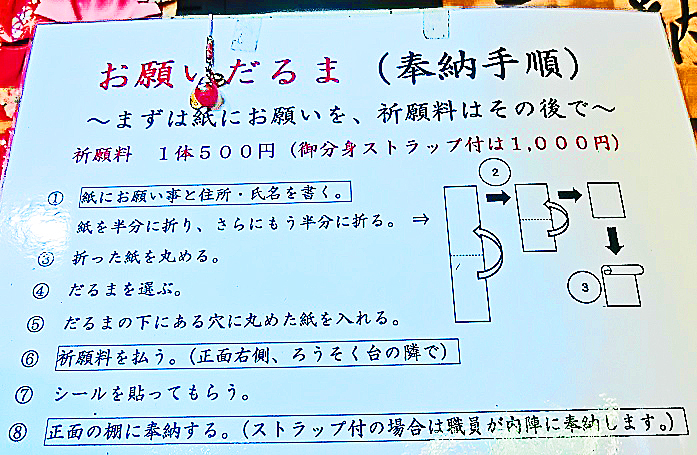 お願いだるま（奉納手順）
～まずは紙にお願いを、祈願料はその後で～
祈願料　１体５００円（御分身ストラップ付は１,０００円）
① 紙にお願い事と住所・氏名を書く。
紙を半分に折り、さらにもう半分に折る。 ⇒
②
③ 折った紙を丸める。
③
④ だるまを選ぶ。
⑤ だるまの下にある穴に丸めた紙を入れる。
⑥ 祈願料を払う。（正面右側、ろうそく台の隣で）
⑦ シールを貼ってもらう。
⑧ 正面の棚に奉納する。（ストラップ付の場合は職員が内陣に奉納します。）